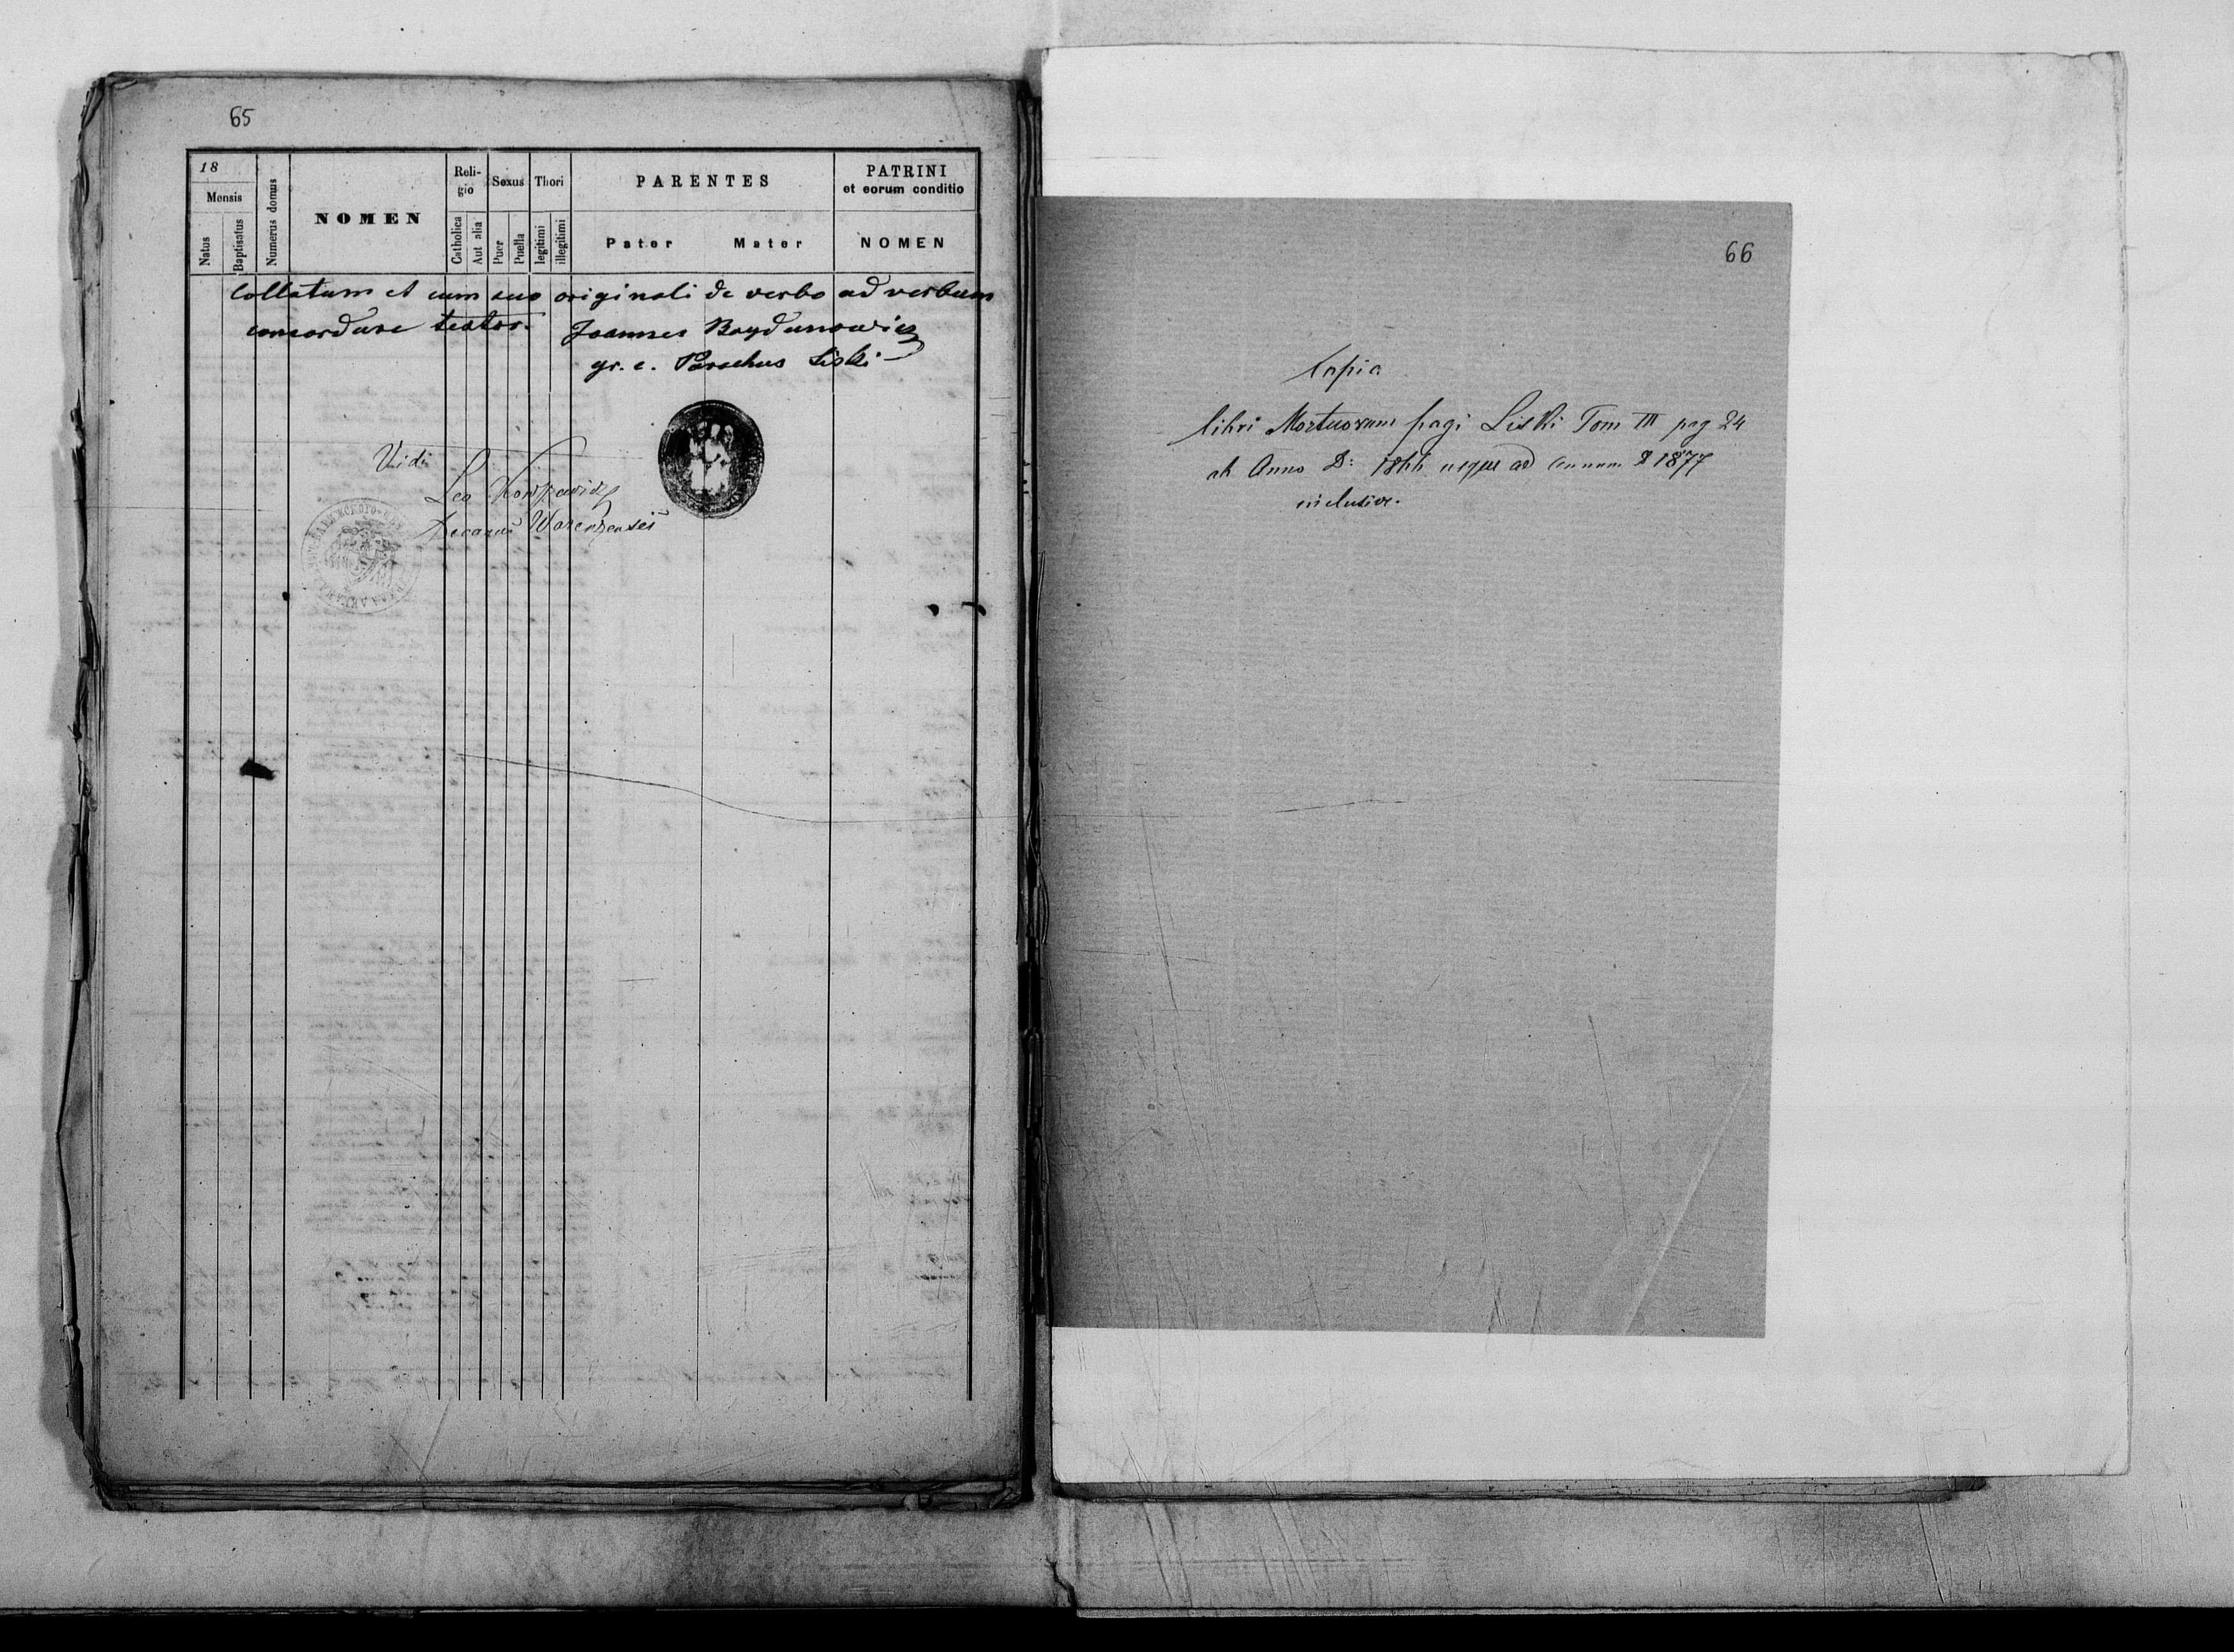 65
18
Mensis
Natus
Baptisatus
Numerus domus
NOMEN
Reli-
gio
Catholica
Aut alia
Sexus
Puer
Puella
Thori
legitimi
illegitimi
PARENTES
Pater Mater
PATRINI
et eorum conditio
NOMEN
Collatum et cum suo originali de verbo ad verbum
concordare testor. Joannes Bogdanowicz
gr. c. Parochus Liski
Vidi
Leo
Decanus
66
Copia
libri Mortuorum pagi Liski Tom III pag 24
ab Anno D: usque ad annum 1877
inclusive.